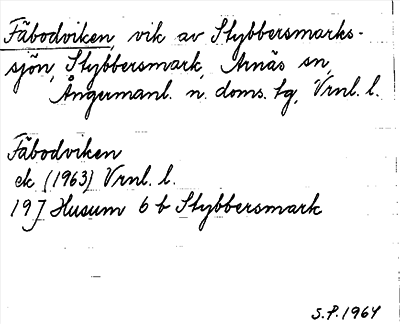 Fäbodviken, vik av Stybbersmarks-
sjön, Stybbersmark, Arnäs sn,
Ångermanl. n. doms. tg, Vrnl. l.
Fäbodviken
ek (1963) Vrnl. l.
19 J Husum 6 b Stybbersmark
S.P. 1964